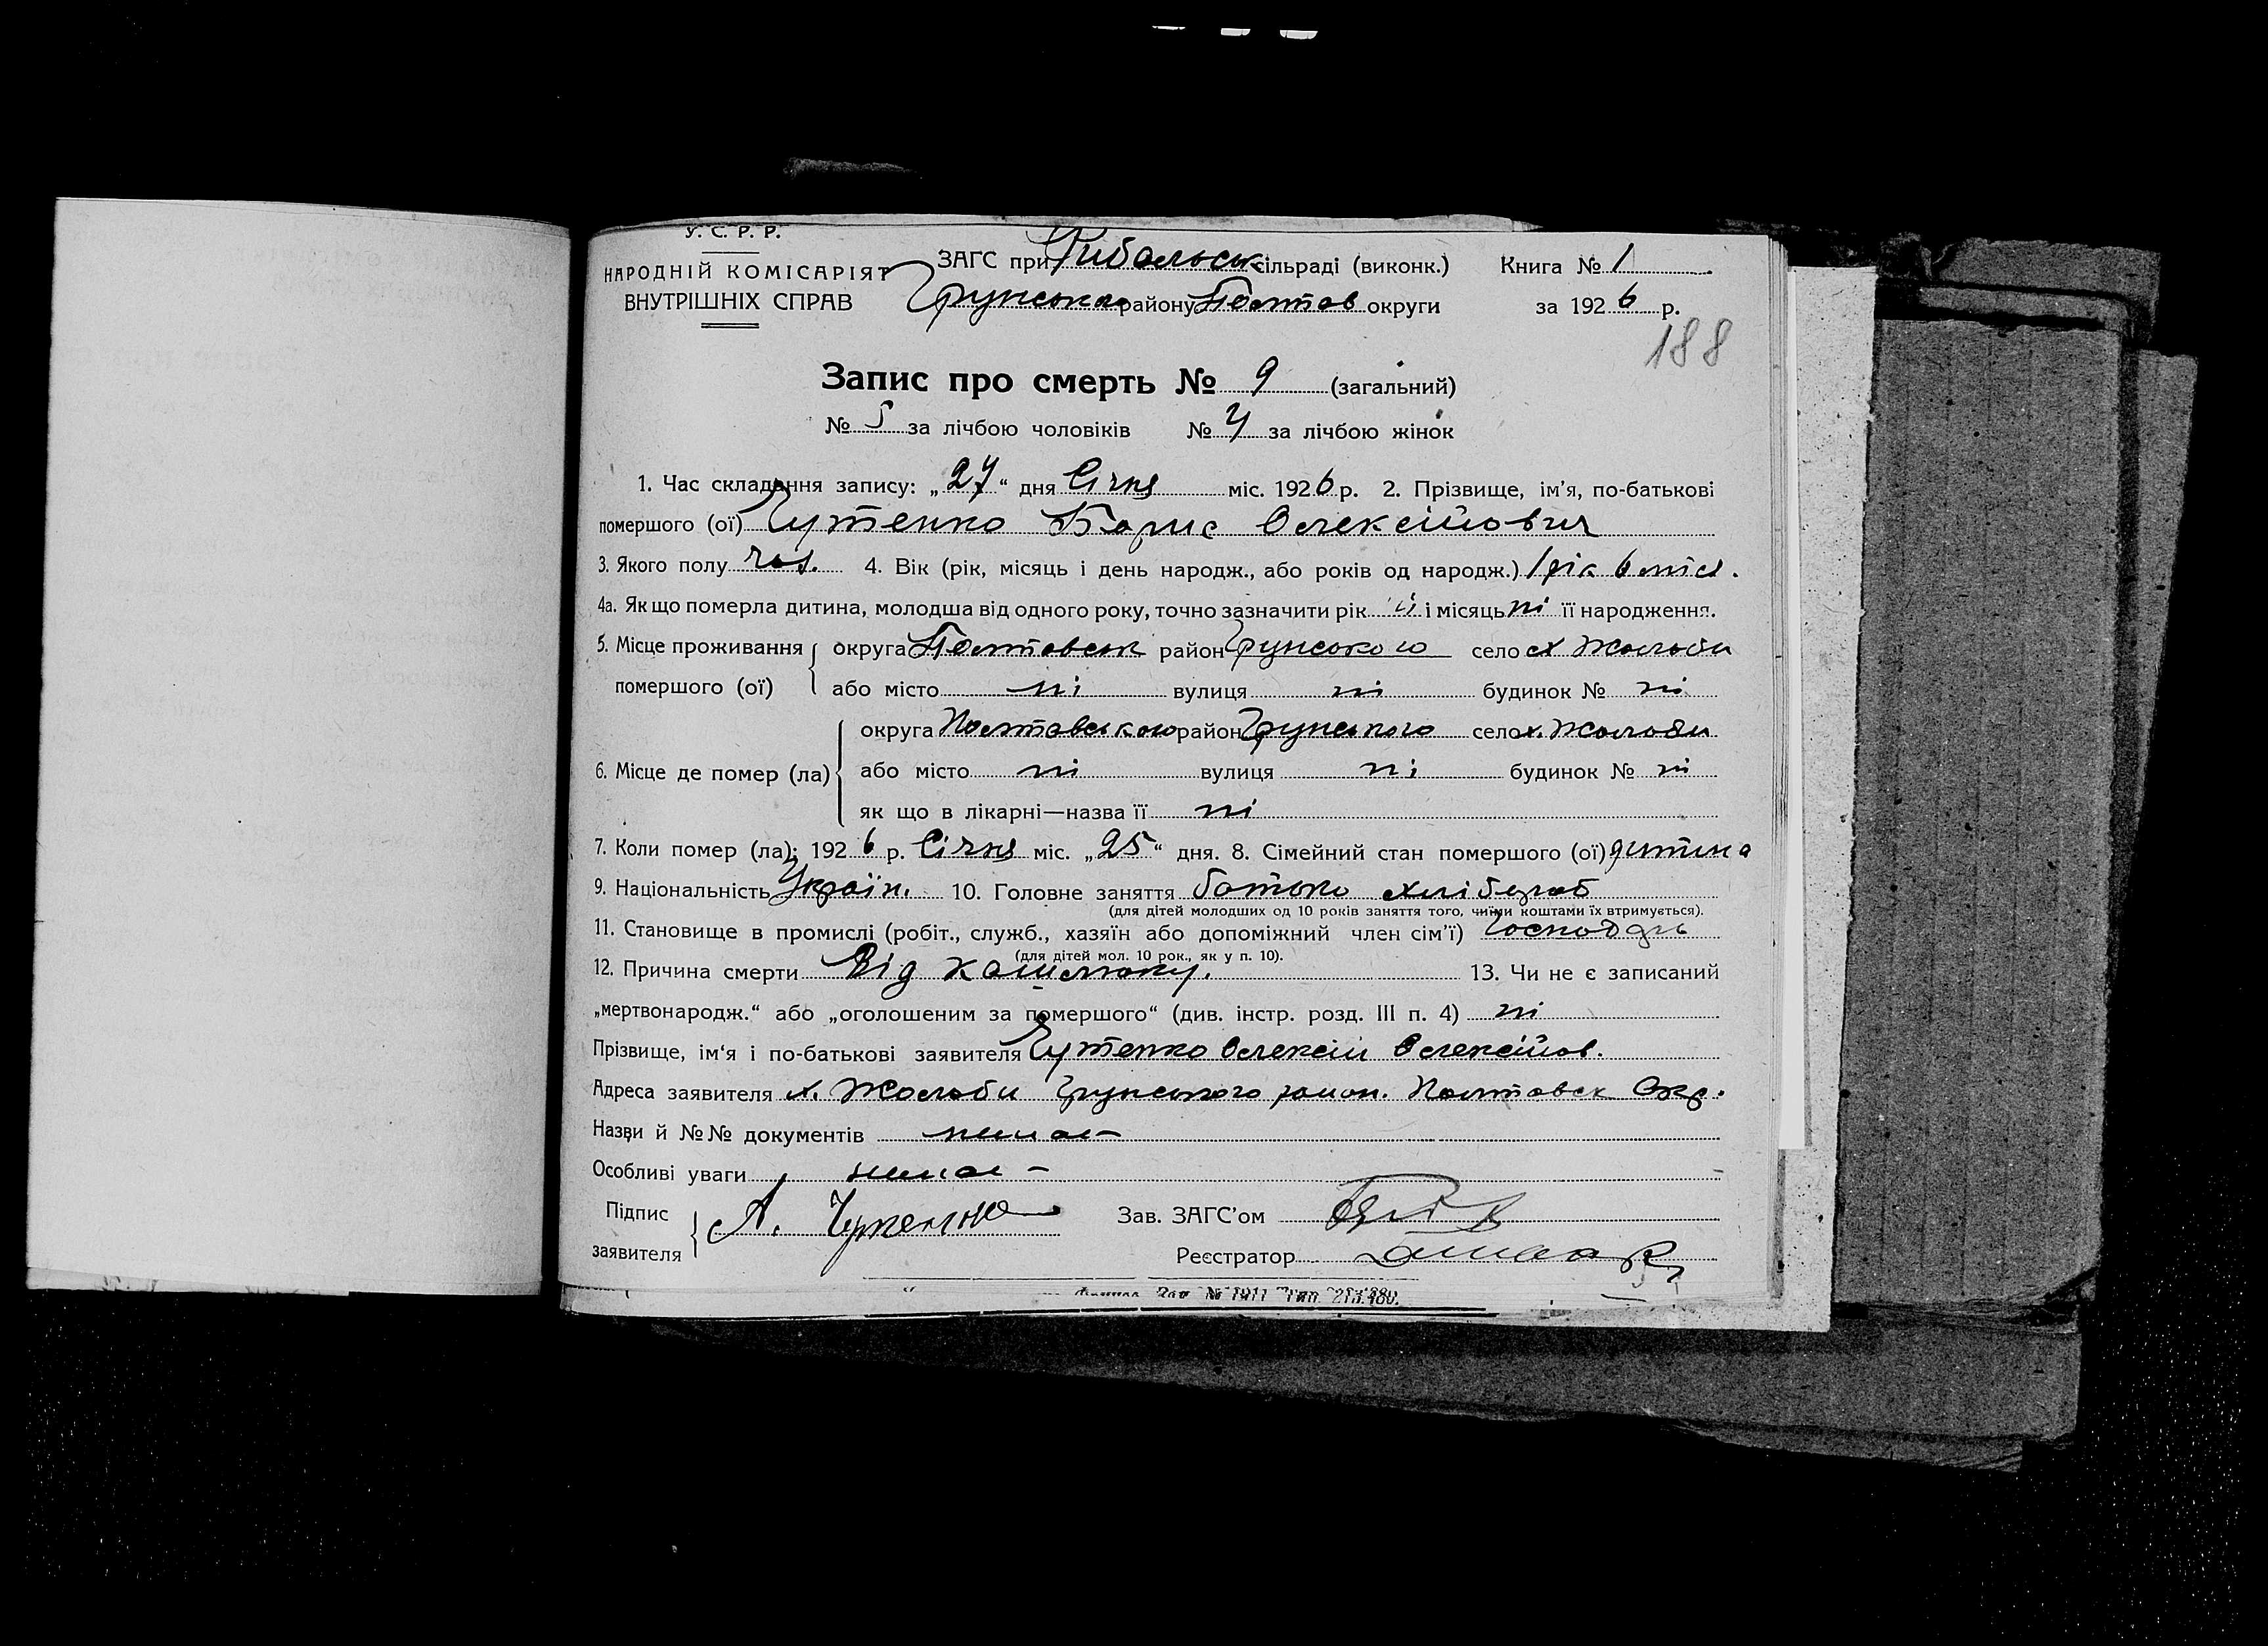 У. С. Р. Р.
НАРОДНІЙ КОМІСАРІЯТ
ВНУТРІШНІХ СПРАВ
ЗАГС при Рибальськ сільраді (виконк.) Книга № 1
Грунського району Полтав округи за 1926 р.
188
Запис про смерть № 9 (загальний)
№ 5 за лічбою чоловіків № 4 за лічбою жінок
1. Час складання запису: „27“ дня Січня міс. 1926 р. 2. Прізвище, ім’я, по-батькові
помершого (ої) Чутенко Борис Олексійович
3. Якого полу чол. 4. Вік (рік, місяць і день народж., або років од народж.) 1 рік 6 міся.
4а. Як що померла дитина, молодша від одного року, точно зазначити рік ні і місяць ні її народження.
5. Місце проживання помершого (ої) округа Полтавськ район Грунського село х Жолоби
або місто ні вулиця ні будинок № ні
6. Місце де помер (ла) округа Полтавського район Грунського село х. Жолоби
або місто ні вулиця ні будинок № ні
як що в лікарні—назва її ні
7. Коли помер (ла): 1926 р. Січня міс. „25“ дня. 8. Сімейний стан помершого (ої) дитина
9. Національність Україн. 10. Головне заняття батько хлібороб
(для дітей молодших од 10 років заняття того, чиїми коштами їх втримується).
11. Становище в промислі (робіт., служб., хазяїн або допоміжний член сім’ї) Господарь
(для дітей мол. 10 рок., як у п. 10).
12. Причина смерти Від кашлюку. 13. Чи не є записаний
„мертвонародж.“ або „оголошеним за помершого“ (див. інстр. розд. III п. 4) ні
Прізвище, ім‘я і по-батькові заявителя Чутенко Олексій Олексійов.
Адреса заявителя х. Жолоби Грунського район. Полтавськ Окр.
Назви й №№ документів немає
Особливі уваги немає
Підпис заявителя А. Чутенко Зав. ЗАГС’ом
Реєстратор